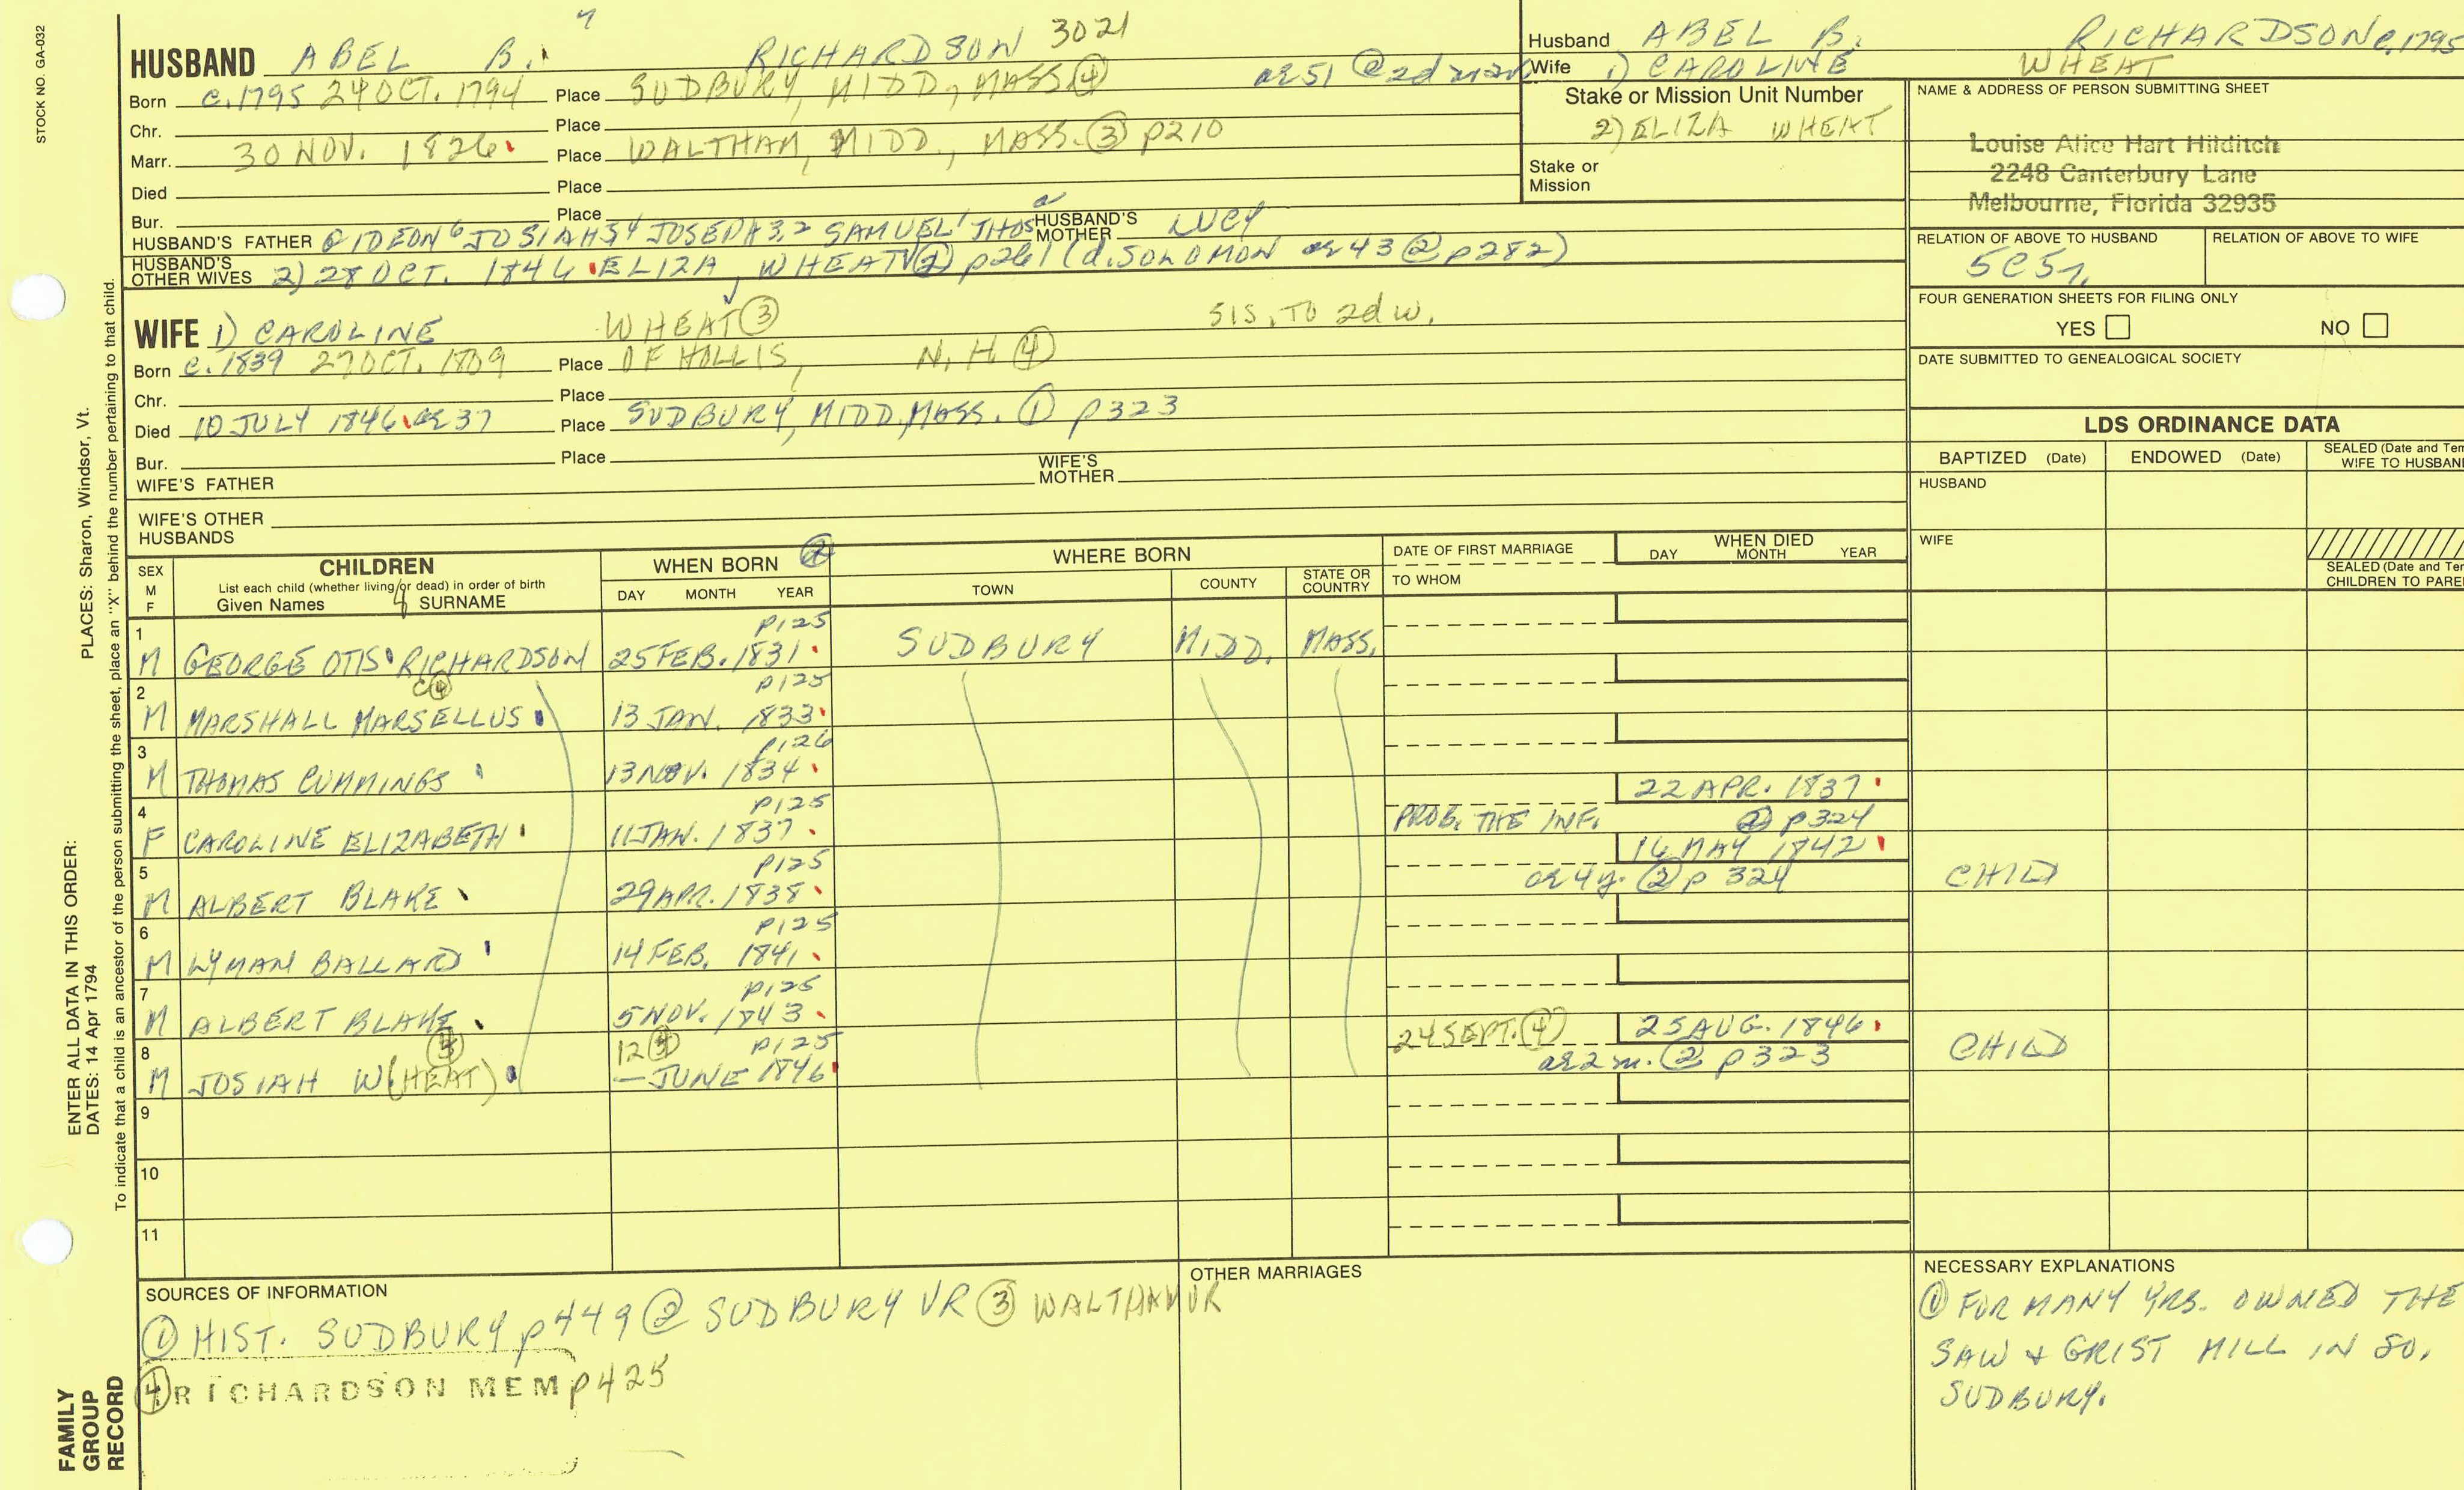 STOCK NO. GA-032
7
HUSBAND ABEL B. RICHARDSON 3021
Born c.1795 24 OCT. 1794 Place SUDBURY, MIDD, MASS ④ ae 51 @ 2d mar
Chr. Place
Marr. 30 NOV. 1826 Place WALTHAM, MIDD., MASS. ③ p210
Died Place
Bur. Place
HUSBAND'S FATHER GIDEON 6 JOSIAH 5 4 JOSEPH 3,2 SAMUEL 1 THOS HUSBAND'S MOTHER LUCY
HUSBAND'S OTHER WIVES 2) 28 OCT. 1846 ELIZA WHEAT ② p261 (d. SOLOMON ae 43 @ p282)
WIFE 1) CAROLINE WHEAT ③ SIS. TO 2d W.
Born c.1839 27 OCT. 1809 Place OF HOLLIS, N.H. ④
Chr. Place
Died 10 JULY 1846 ae 37 Place SUDBURY, MIDD, MASS. ① p323
Bur. Place
WIFE'S FATHER WIFE'S MOTHER
WIFE'S OTHER HUSBANDS
Husband ABEL B. RICHARDSON c.1795
Wife 1) CAROLINE WHEAT
Stake or Mission Unit Number
2) ELIZA WHEAT
Stake or Mission
NAME & ADDRESS OF PERSON SUBMITTING SHEET
Louise Alice Hart Hilditch
2248 Canterbury Lane
Melbourne, Florida 32935
RELATION OF ABOVE TO HUSBAND RELATION OF ABOVE TO WIFE
5C5r
FOUR GENERATION SHEETS FOR FILING ONLY
YES NO
DATE SUBMITTED TO GENEALOGICAL SOCIETY
LDS ORDINANCE DATA
BAPTIZED (Date) ENDOWED (Date) SEALED (Date and Tem
WIFE TO HUSBAN
HUSBAND
WIFE
SEALED (Date and Tem
CHILDREN TO PARE
SEX M F
CHILDREN
List each child (whether living or dead) in order of birth
Given Names SURNAME
WHEN BORN ②
DAY MONTH YEAR
WHERE BORN
TOWN COUNTY STATE OR COUNTRY
DATE OF FIRST MARRIAGE
TO WHOM
WHEN DIED
DAY MONTH YEAR
8
1 p125
M GEORGE OTIS RICHARDSON 25 FEB. 1831 SUDBURY MIDD. MASS.
2 C④ p125
M MARSHALL MARSELLUS 13 JAN. 1833
3 p126
M THOMAS CUMMINGS 13 NOV. 1834
4 p125 22 APR. 1837
F CAROLINE ELIZABETH 11 JAN. 1837 PROB. THE INF. ② p324
5 p125 16 MAY 1842
M ALBERT BLAKE 29 APR. 1838 ae 4y. ② p 324 CHILD
6 p125
M LYMAN BALLARD 14 FEB. 1841
7 p125
M ALBERT BLAKE 5 NOV. 1843
8 12 ④ p125 24 SEPT. ④ 25 AUG. 1846
M JOSIAH W(HEAT) — JUNE 1846 ae 2 m. ② p323 CHILD
9
10
11
SOURCES OF INFORMATION
① HIST. SUDBURY p449 ② SUDBURY VR ③ WALTHAM VR
④ RICHARDSON MEM p425
OTHER MARRIAGES
NECESSARY EXPLANATIONS
① FOR MANY YRS. OWNED THE
SAW & GRIST MILL IN SO.
SUDBURY.
PLACES: Sharon, Windsor, Vt.
ENTER ALL DATA IN THIS ORDER:
DATES: 14 Apr 1794
To indicate that a child is an ancestor of the person submitting the sheet, place an "X" behind the number pertaining to that child.
FAMILY
GROUP
RECORD